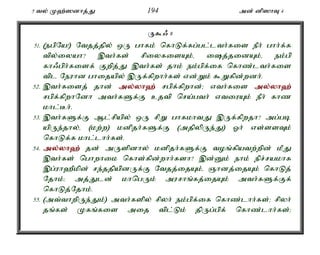 5 வல் முஹ்ஸனாத்து 194 அன் னிஸாவு 4
ருகூஃ 8
51. (நபியே) வேதத்தில் ஒரு பாகம் கொடுக்கப்பட்டவர்களை நீர் பார்க்க
வில்லையா? இவர்கள் சிலைகளையும், ஷைத்தானையும், நம்பி
காஃபிர்களைக் குறித்து இவர்கள் தாம் நம்பிக்கை கொண்டவர்களை
விட நேரான பாதையில் இருக்கிறார்கள் என்றும் கூறுகின்றனர்.
52. இவர்களைத் தான் அல்லாஹ் சபிக்கிறான்; எவர்களை அல்லாஹ்
சபிக்கிறானோ அவர்களுக்கு உதவி செய்பவர் எவரையும் நீர் காண
மாட்டீர்.
53. இவர்களுக்கு ஆட்சியில் ஒரு சிறு பாகமாவது இருக்கிறதா? அப்படி
யிருந்தால், (மற்ற) மனிதர்களுக்கு (அதிலிருந்து) ஓர் எள்ளளவும்
கொடுக்க மாட்டார்கள்.
54. அல்லாஹ் தன் அருளினால் மனிதர்களுக்கு வழங்கியவற்றின் மீது
இவர்கள் பொறாமை கொள்கின்றார்களா? இன்னும் நாம் நிச்சயமாக
இப்ராஹீமின் சந்ததியினருக்கு வேதத்தையும், ஞானத்தையும் கொடுத்
தோம்; அத்துடன் மாபெரும் அரசாங்கத்தையும் அவர்களுக்குக்
கொடுத்தோம்.
55. (அவ்வாறிருந்தும்) அவர்களில் சிலர் நம்பிக்கை கொண்டார்கள்; சிலர்
தங்கள் முகங்களை அதை விட்டும் திருப்பிக் கொண்டார்கள்;